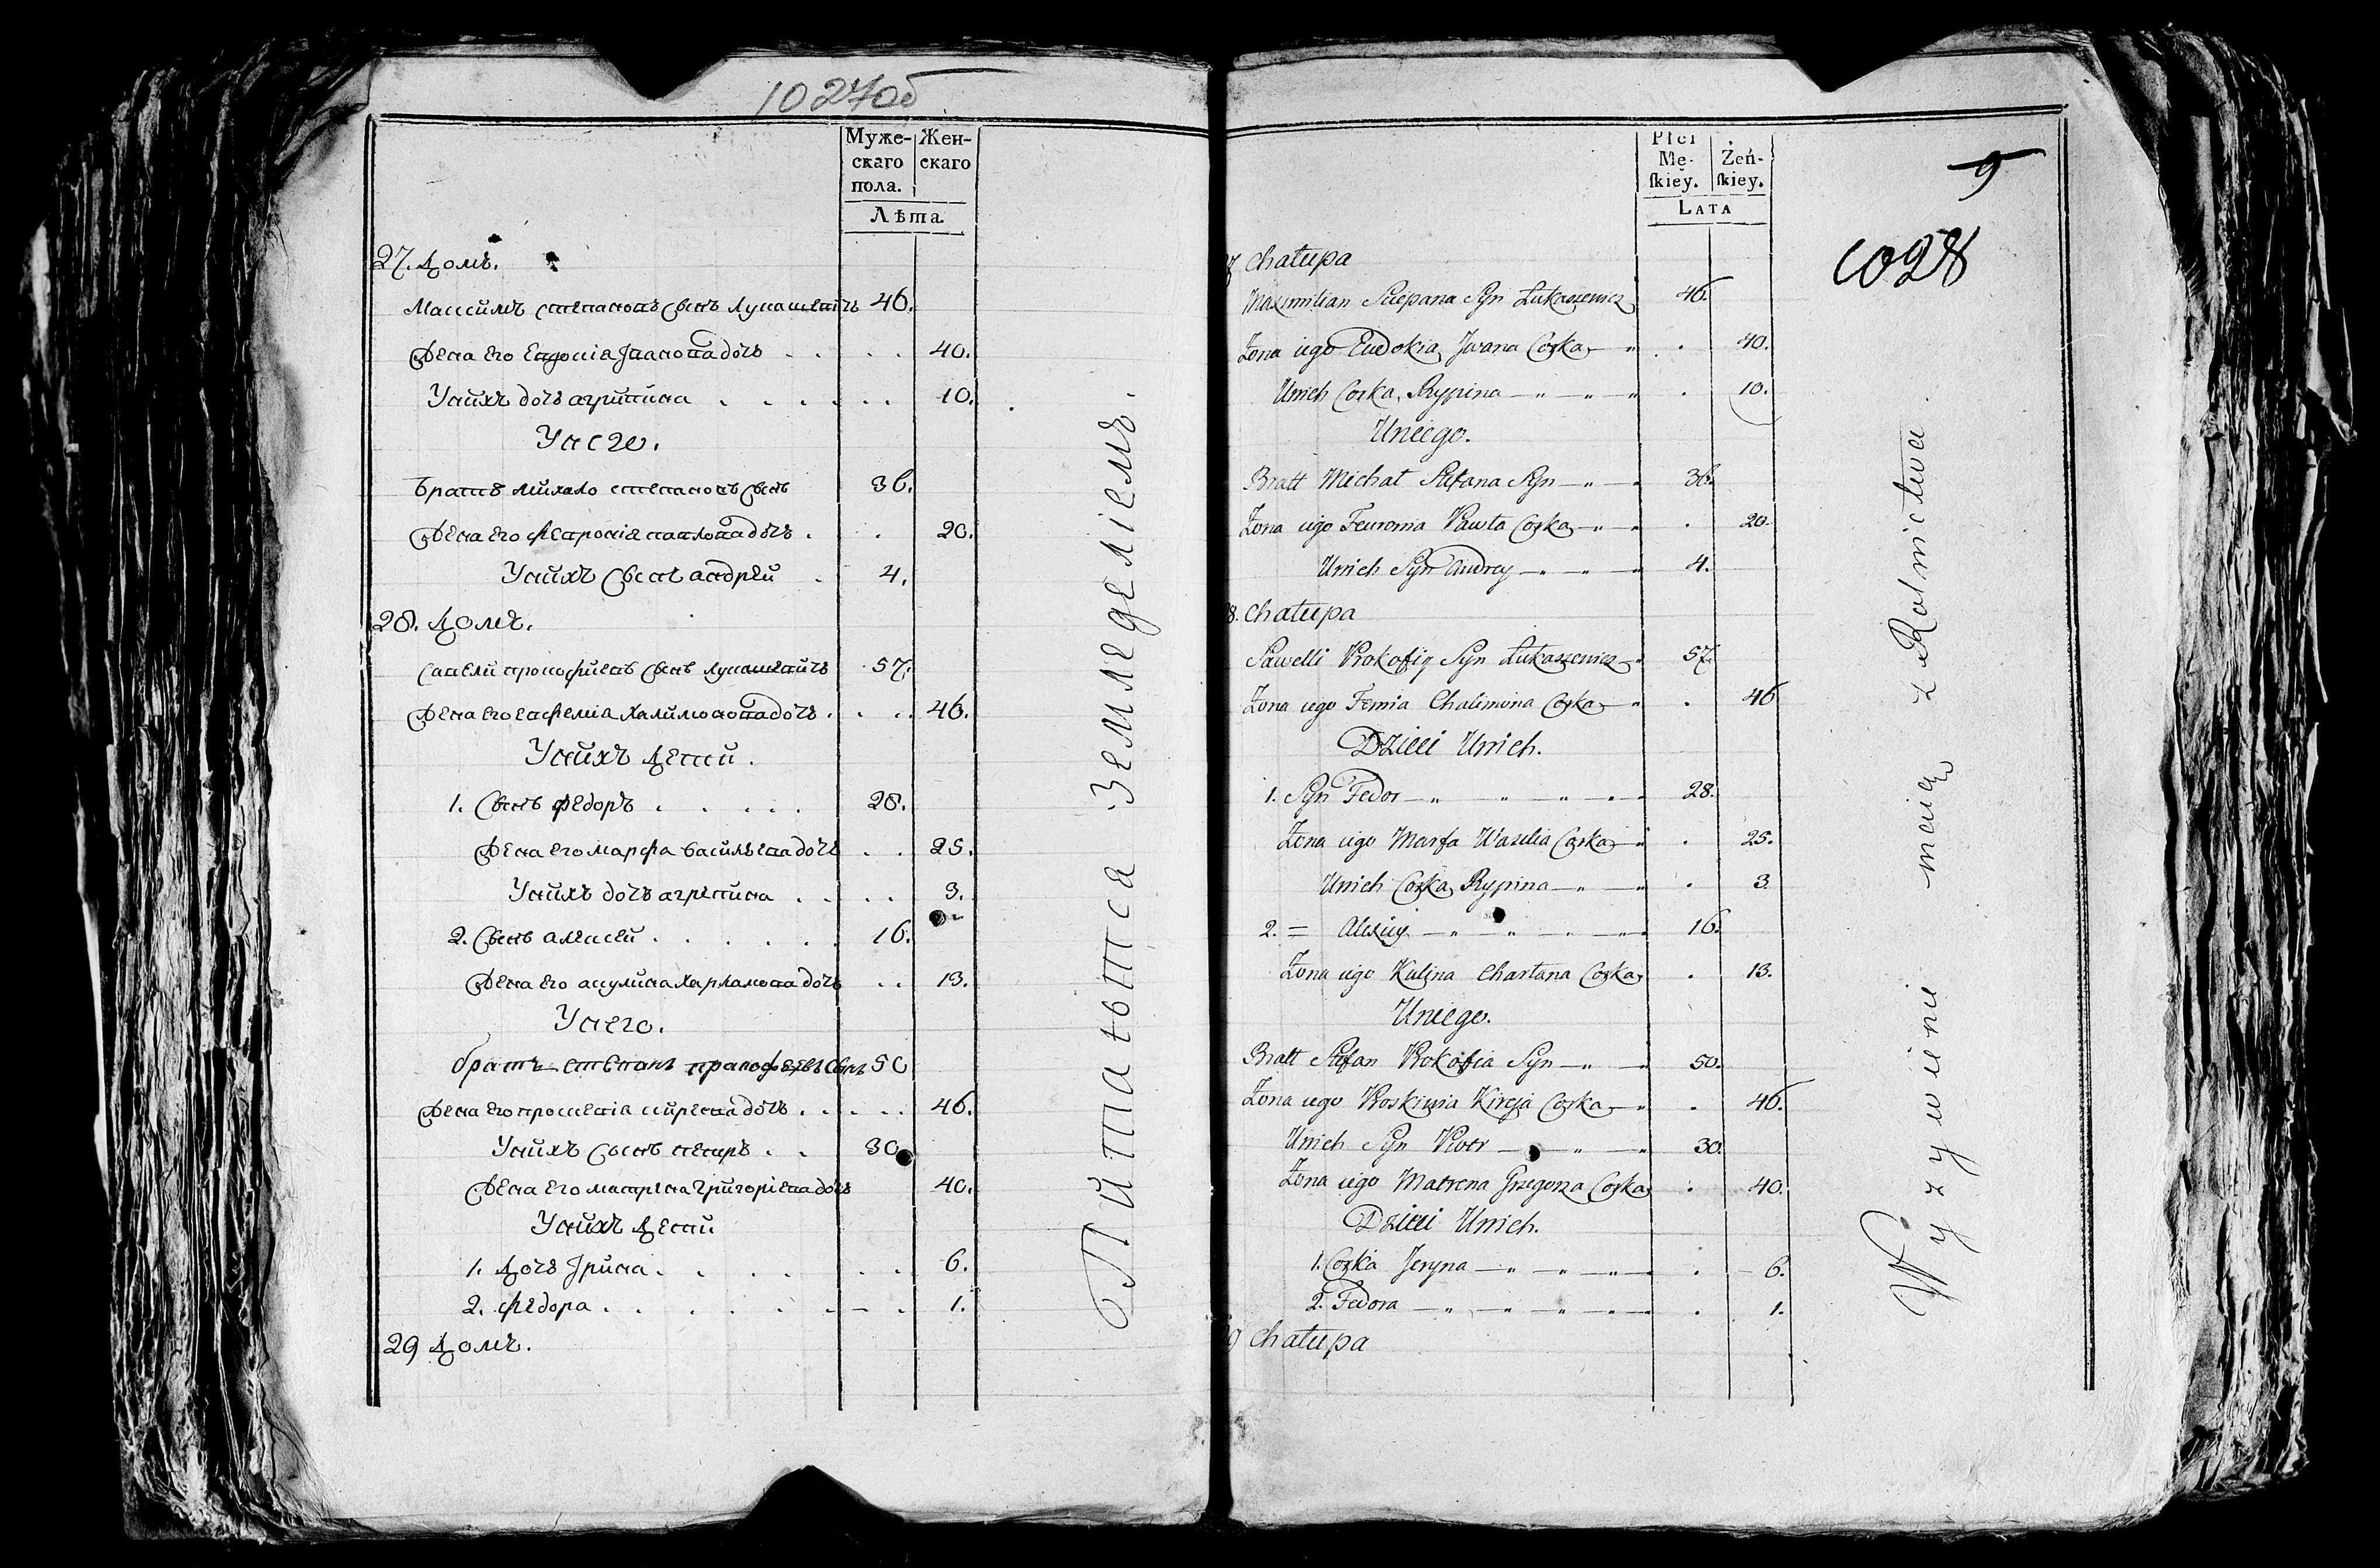 1027об
Муже-
скаго
пола.
Жен-
скаго
Лѣта
27. Домъ.
Максимъ степановъ сынъ лукашевичъ 46.
Жена его Евдокія Iванова дочь . . . . 40.
У нихъ дочь агрипина . . . . . . 10.
У него.
братъ михало степановъ сынъ 36.
Жена его февронія павлова дочь . . . 20.
У нихъ сынъ андрей . 4.
28. Домъ.
савели прокофиевъ сынъ лукашевичъ 57.
Жена его евфемiа халимонова дочь . . . . 46.
У нихъ дети .
1. сынъ федоръ . . . . . 28.
Жена его марфа васильева дочь . . 25.
У нихъ дочь агрепина . . . . 3.
2. сынъ алексей . . . . . . 16.
Жена его акулина харланова дочь . . 13.
У него.
братъ степанъ пракофеевъ сынъ 50
Жена его проскевiа кирева дочь . . . . . 46.
У нихъ сынъ петръ . . 30
Жена его матрена григорiева дочь 40.
У нихъ дети
1. дочь Iрина . . . . . . 6.
2. федора . . . . . . . . 1.
29 Домъ.
Питаются Земледелiемъ.
Płci
Mę-
skiey.
Żeń-
skiey.
LATA
9
1028
27 Chałupa
Maximilian Sciepana Syn Łukaszewicz 46.
Zona iego Eudokia Jwana Corka — " . . 40.
Unich Corka Rypina — " — " — " . 10.
Uniego.
Bratt Michał Stefana Syn — " — 36.
Zona iego Feuronia Pawła Corka — " . 20.
Unich Syn Andrey — " — " — 4.
28. Chałupa
Sawelli Prokofiy Syn Łukaszewicz — 57.
Zona iego Femia Chalimona Corka — " . 46
Dzieci Unich.
1. Syn Fedor — " — " — " — 28.
Zona iego Marfa Wasilia Corka — " . 25.
Unich Corka Rypina — " — " . 3
2. = Alexiey — " — " — " — 16.
Zona iego Kulina Charłana Corka . 13.
Uniego.
Bratt Stefan Prokofia Syn — " — 50.
Zona iego Proskiwia Kireja Corka — " . 46.
Unich Syn Piotr — " — " 30.
Zona iego Matrena Grzegorza Corka . 40.
Dzieci Unich.
1. Corka Jeryna — " — " — " — . 6.
2. Fedora — " — " — " — . 1.
29 Chałupa
Wyzywienie maią z Rolnictwa.